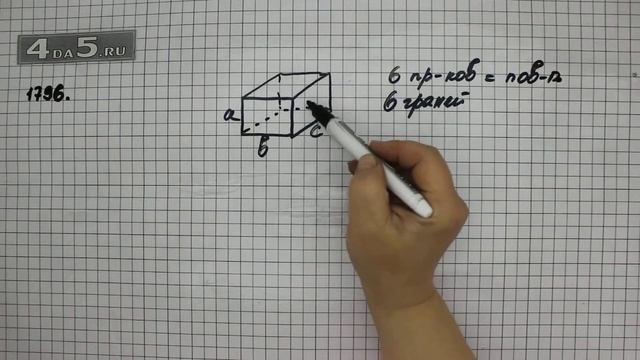 4DA5.RU
1796.
6 пр-ков = пов-ть
6 граней
a
b
c